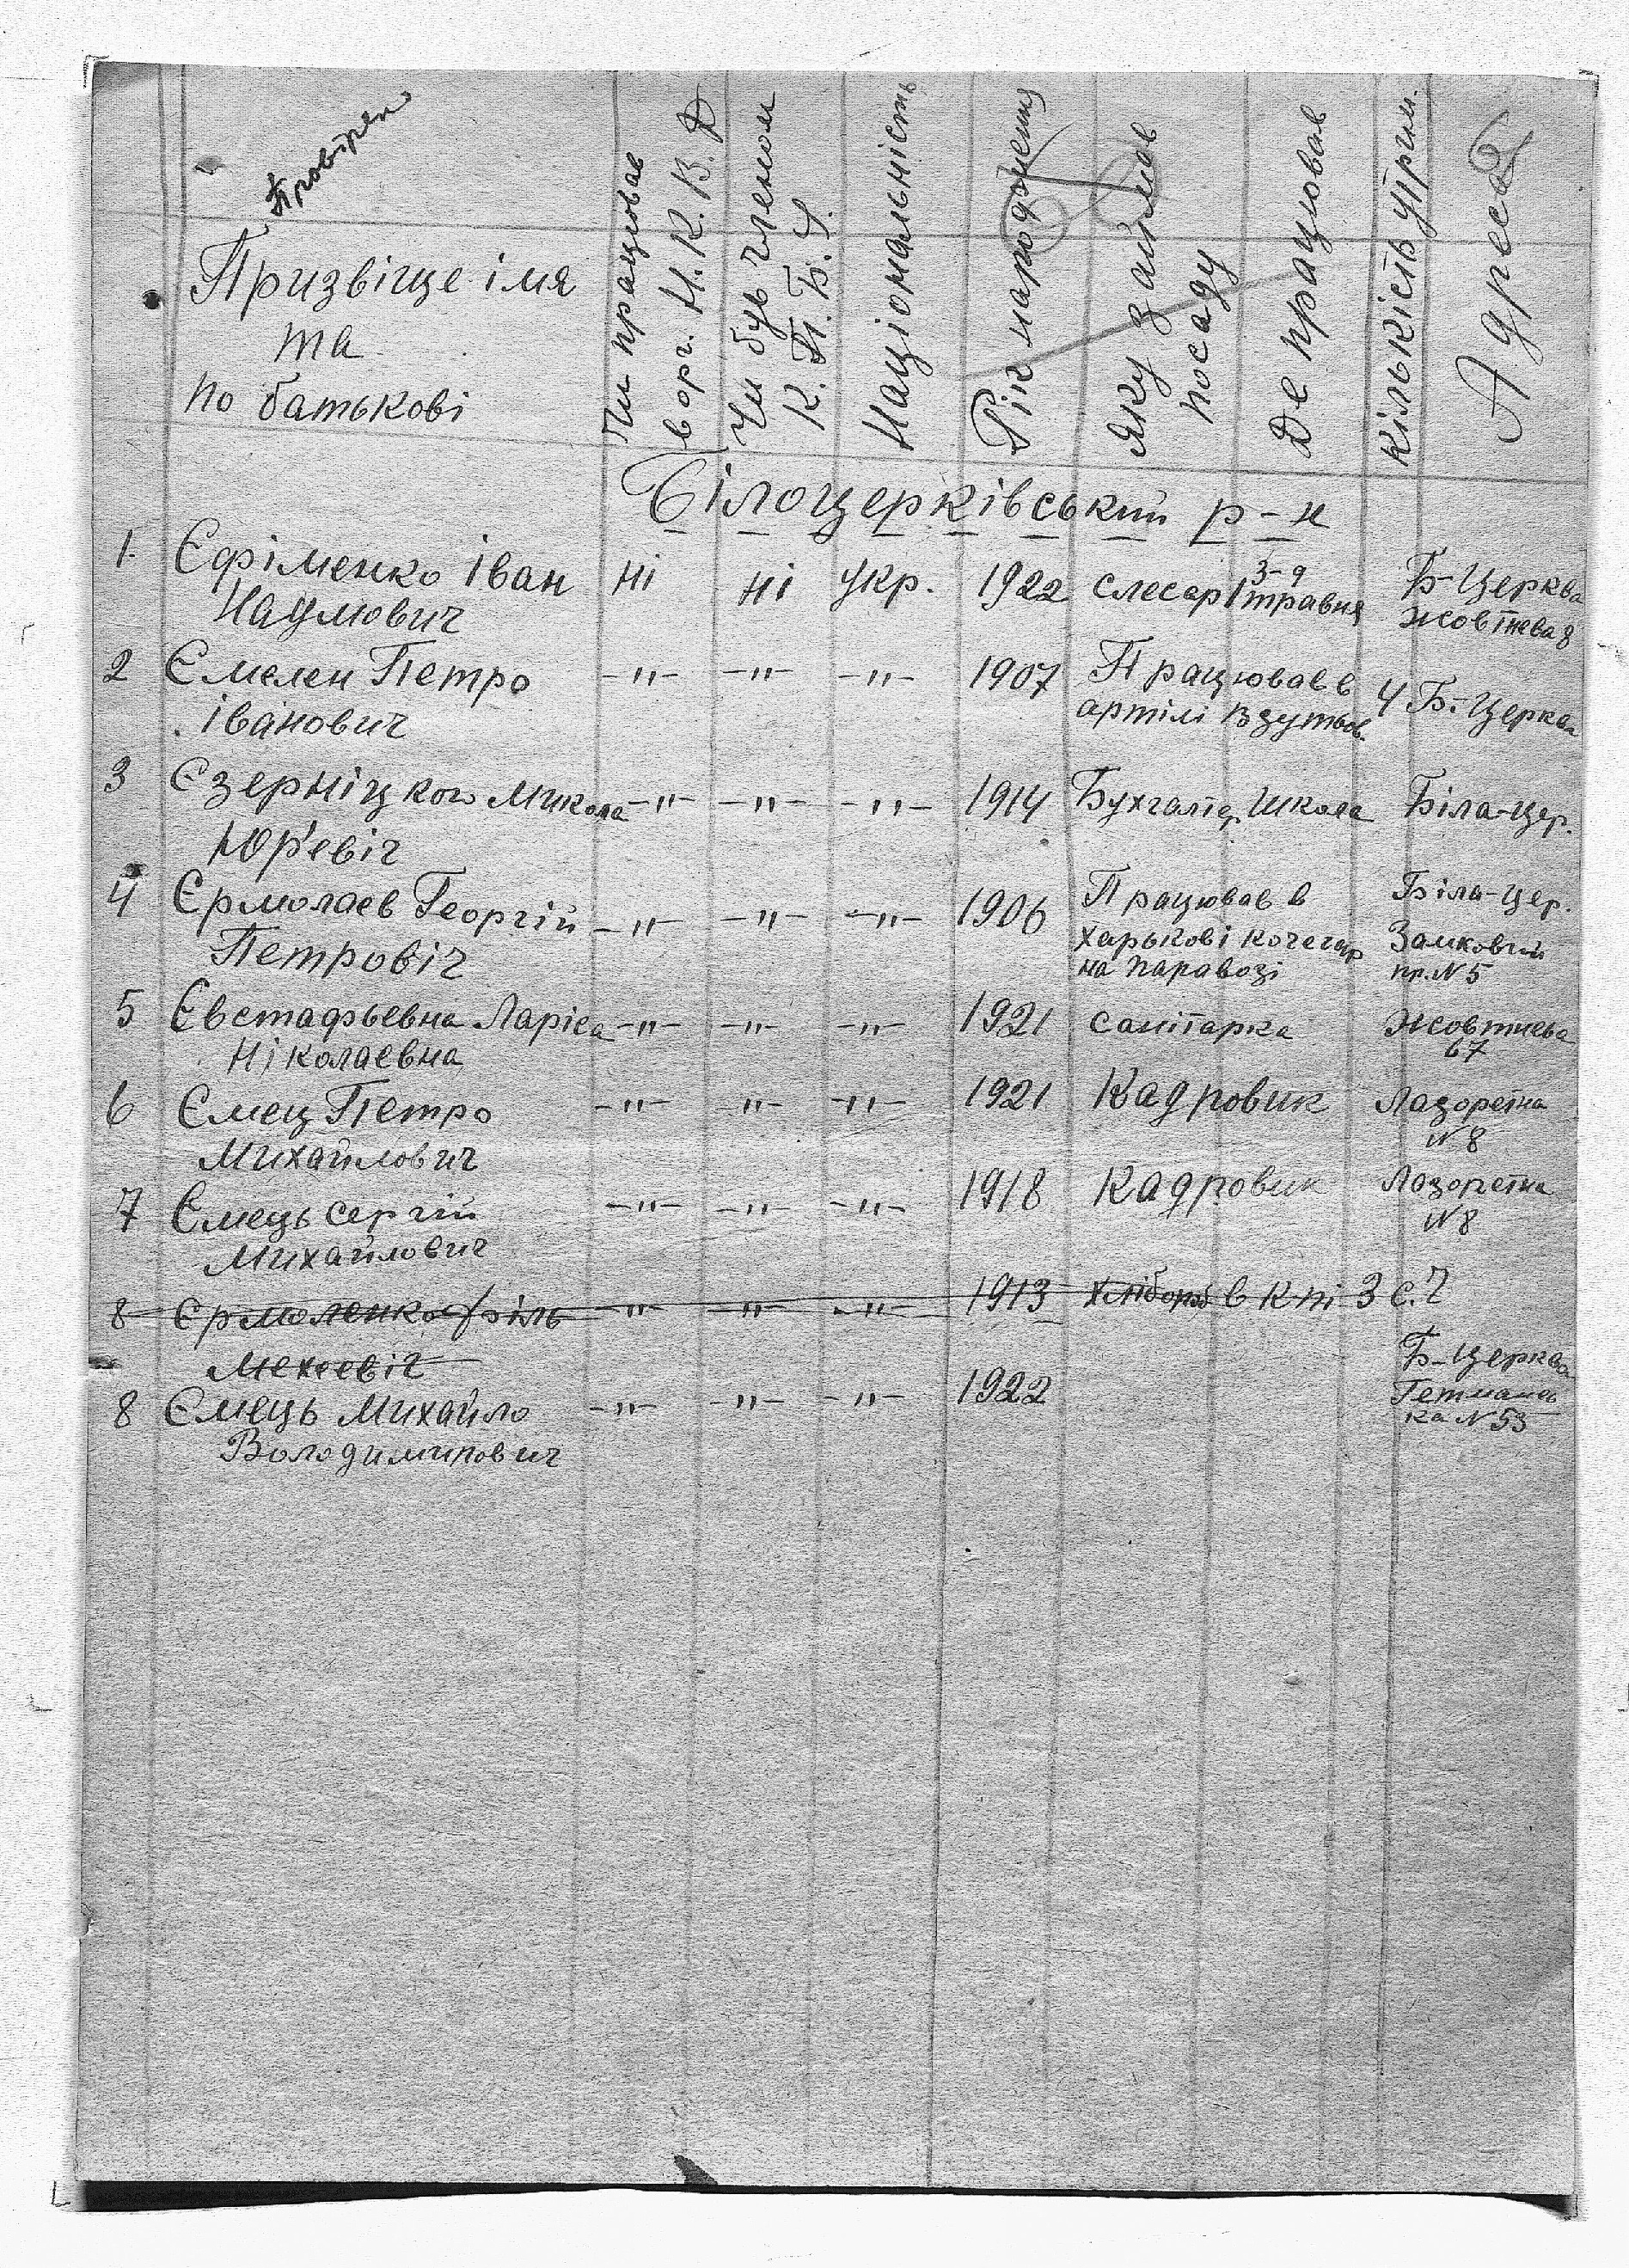 Провірен
Призвіще імя
та
по батькові
Чи працював
в орг. Н.К.В.Д
Чи був членом
К.П.Б.У.
Національність
Рік народження
Яку займав
посаду
Де працював
Кількість утрим.
Адреса
Білоцерківський р-н
1. Єфіменко Іван ні ні укр. 1922 слесар З-д Б-Церква
Наумович 1 травня Жовтнева 8
2 Ємелен Петро -"- -"- -"- 1907 Працював в 4 Б.-Церква
Іванович артілі
3 Єзерніцкого Микола -"- -"- -"- 1914 Бухгалтер. Школа Біла-Цер.
Юр'евіч
4 Єрмолаєв Георгій -"- -"- -"- 1906 Працював в Біла-Цер.
Петровіч Харькові кочегар Замковий
на паравозі пр. N 5
5 Євстафьевна Ларіса -"- -"- -"- 1921 санітарка Жовтнева
Ніколаевна 67
6 Ємец Петро -"- -"- -"- 1921 Кадровик Лазоретна
Михайлович N 8
7 Ємець Сергій -"- -"- -"- 1918 Кадровик Лазоретна
Михайлович N 8
8 Єрмоленко -"- -"- -"- 1913 хлібороб в к-пі 3 с.
Мехеевіч
8 Ємець Михайло -"- -"- -"- 1922 Б-Церква
Володимирович Гетмансь
ка N 53